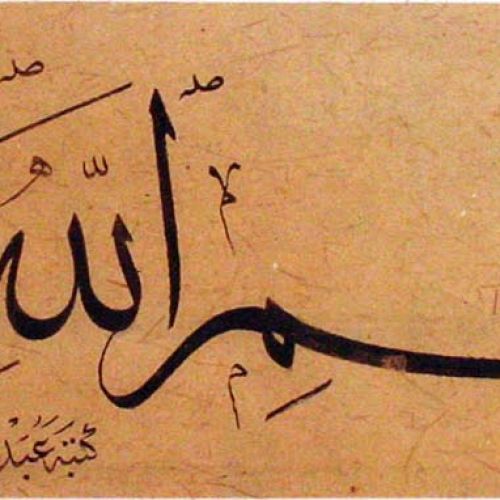 ـسمِ الله
كتبه عبد